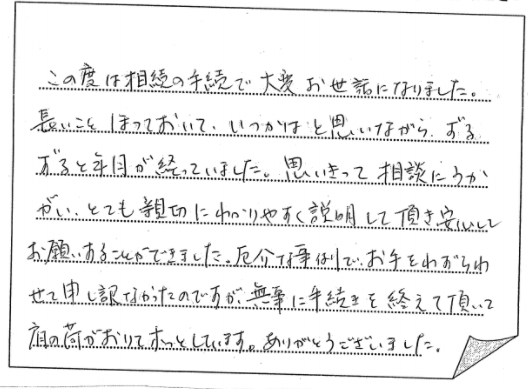 この度は相続の手続で大変お世話になりました。
長いことほっておいて、いつかはと思いながら、ずる
ずると年月が経っていました。思いきって相談にうか
がい、とても親切にわかりやすく説明して頂き安心して
お願いすることができました。厄介な事例で、お手をわずらわ
せて申し訳なかったのですが、無事に手続きを終えて頂いて
肩の荷がおりてホッとしています。ありがとうございました。